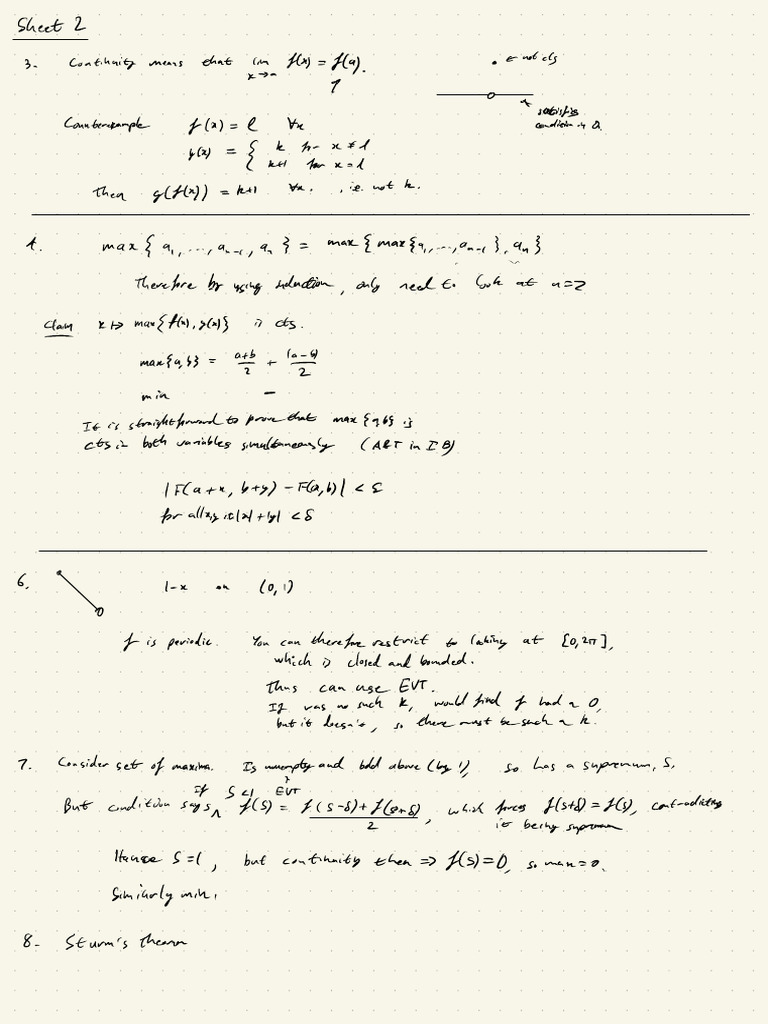 Sheet 2
3. Continuity means that lim x→a f(x) = f(a).
← not cts
satisfies
condition in Q.
Counterexample f(x) = l ∀x
g(x) = { k for x ≠ l
k+1 for x = l
Then g(f(x)) = k+1 ∀x. , i.e. not k.
4. max{a₁,...,aₙ₋₁, aₙ} = max{max{a₁,...,aₙ₋₁}, aₙ}
Therefore by using induction, only need to look at n=2
Claim x ↦ max{f(x), g(x)} is cts.
max{a,b} = (a+b)/2 + |a-b|/2
min −
It is straightforward to prove that max{a,b} is
cts in both variables simultaneously (A&T in IB)
|F(a+x, b+y) − F(a,b)| < ε
for all x,y if |x|+|y| < δ
6. 1-x on (0,1)
f is periodic. You can therefore restrict to looking at [0,2π],
which is closed and bounded.
Thus can use EVT.
If was no such k, would find f had a 0,
but it doesn't, so there must be such a k.
7. Consider set of maxima. Is nonempty and bdd above (by 1), so has a supremum, S.
↑ EVT
But condition says, if S<1 f(S) = (f(S-δ)+f(S+δ))/2, which forces f(S+δ) = f(S), contradicting
it being supremum
Hence S=1, but continuity then ⇒ f(S)=0, so max=0.
Similarly min.
8. Sturm's theorem